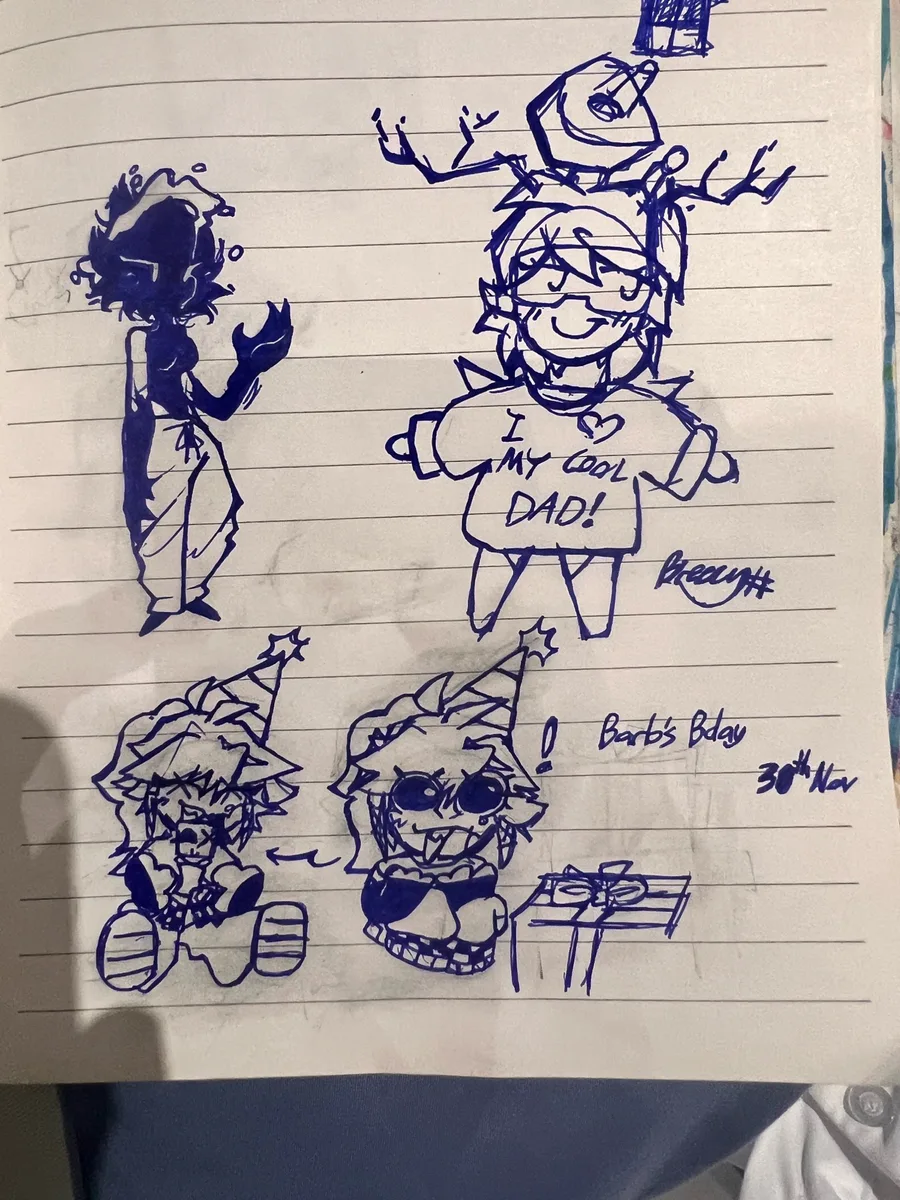 I ♡
MY COOL
DAD!
Breezy#
!
Barb's Bday
30th Nov